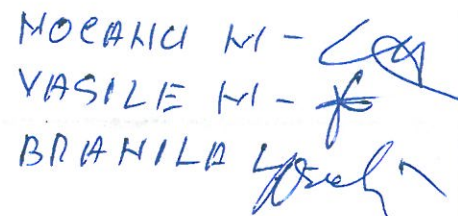 MOCANU M -
VASILE M -
BRANILA